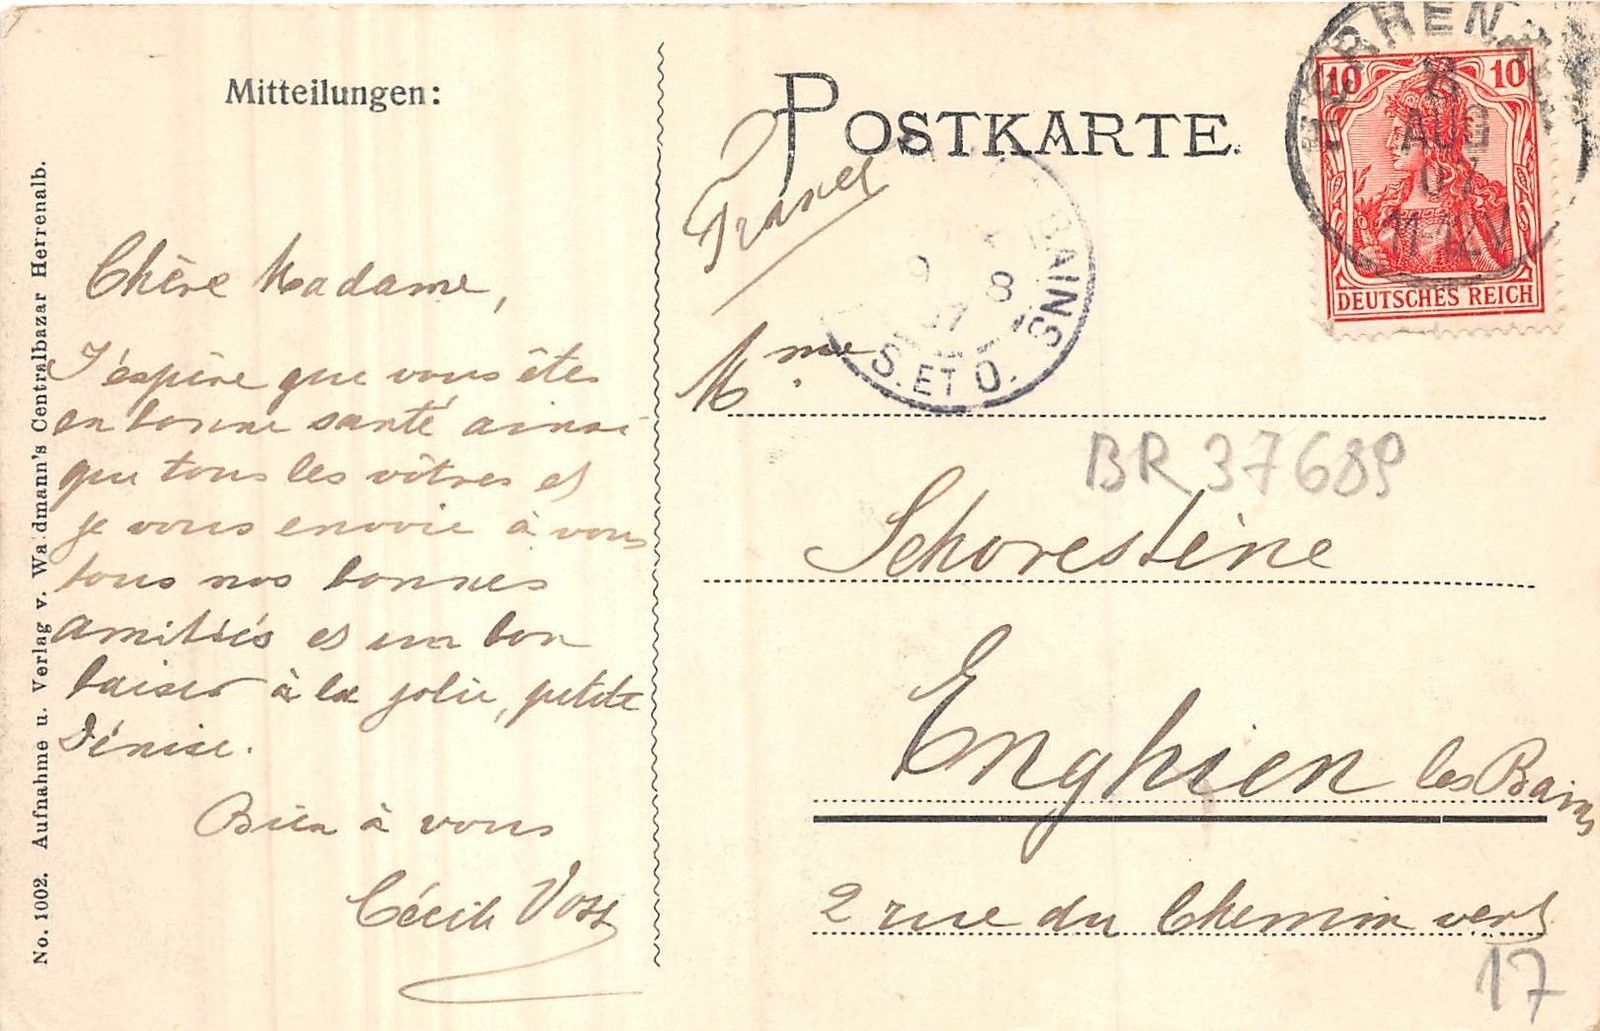 Mitteilungen:
Chère Madame,
J'éspère que vous êtes
en bonne santé ainsi
que tous les vôtres et
je vous envoie à vous
tous nos bonnes
amitiés et un bon
baiser à la jolie, petite
Dénise.
Bien à vous
Cécile Voss
No. 1002. Aufnahme u. Verlag v. Waldmann's Centralbazar Herrenalb.
POSTKARTE.
France
10 10
DEUTSCHES REICH
8
AUG
07
11-12V
BAINS
9 8
07
S. ET O.
Mme.
BR 37689
Schorestène
Enghien les Bains
2 rue du Chemin vert
17